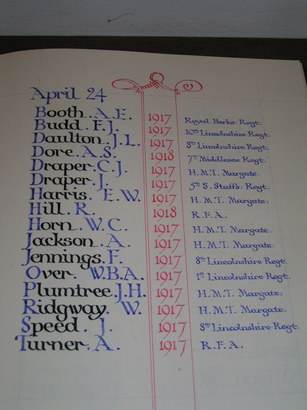 April 24
Booth. A.E. 1917 Royal Berks Regt.
Budd. F.J. 1917 10th Lincolnshire Regt.
Daulton. J.L. 1917 8th Lincolnshire Regt.
Dore. A.S. 1918 7th Middlesex Regt.
Draper. C.J. 1917 H.M.T. Margate.
Draper. J. 1917 5th S. Staffs. Regt.
Harris. E.W. 1917 H.M.T. Margate.
Hill. R. 1918 R.F.A.
Horn. W.C. 1917 H.M.T. Margate.
Jackson. A. 1917 H.M.T. Margate.
Jennings. F. 1917 8th Lincolnshire Regt.
Over. W.B.A. 1917 1st Lincolnshire Regt.
Plumtree. J.H. 1917 H.M.T. Margate.
Ridgway. W. 1917 H.M.T. Margate.
Speed. J. 1917 8th Lincolnshire Regt.
Turner. A. 1917 R.F.A.